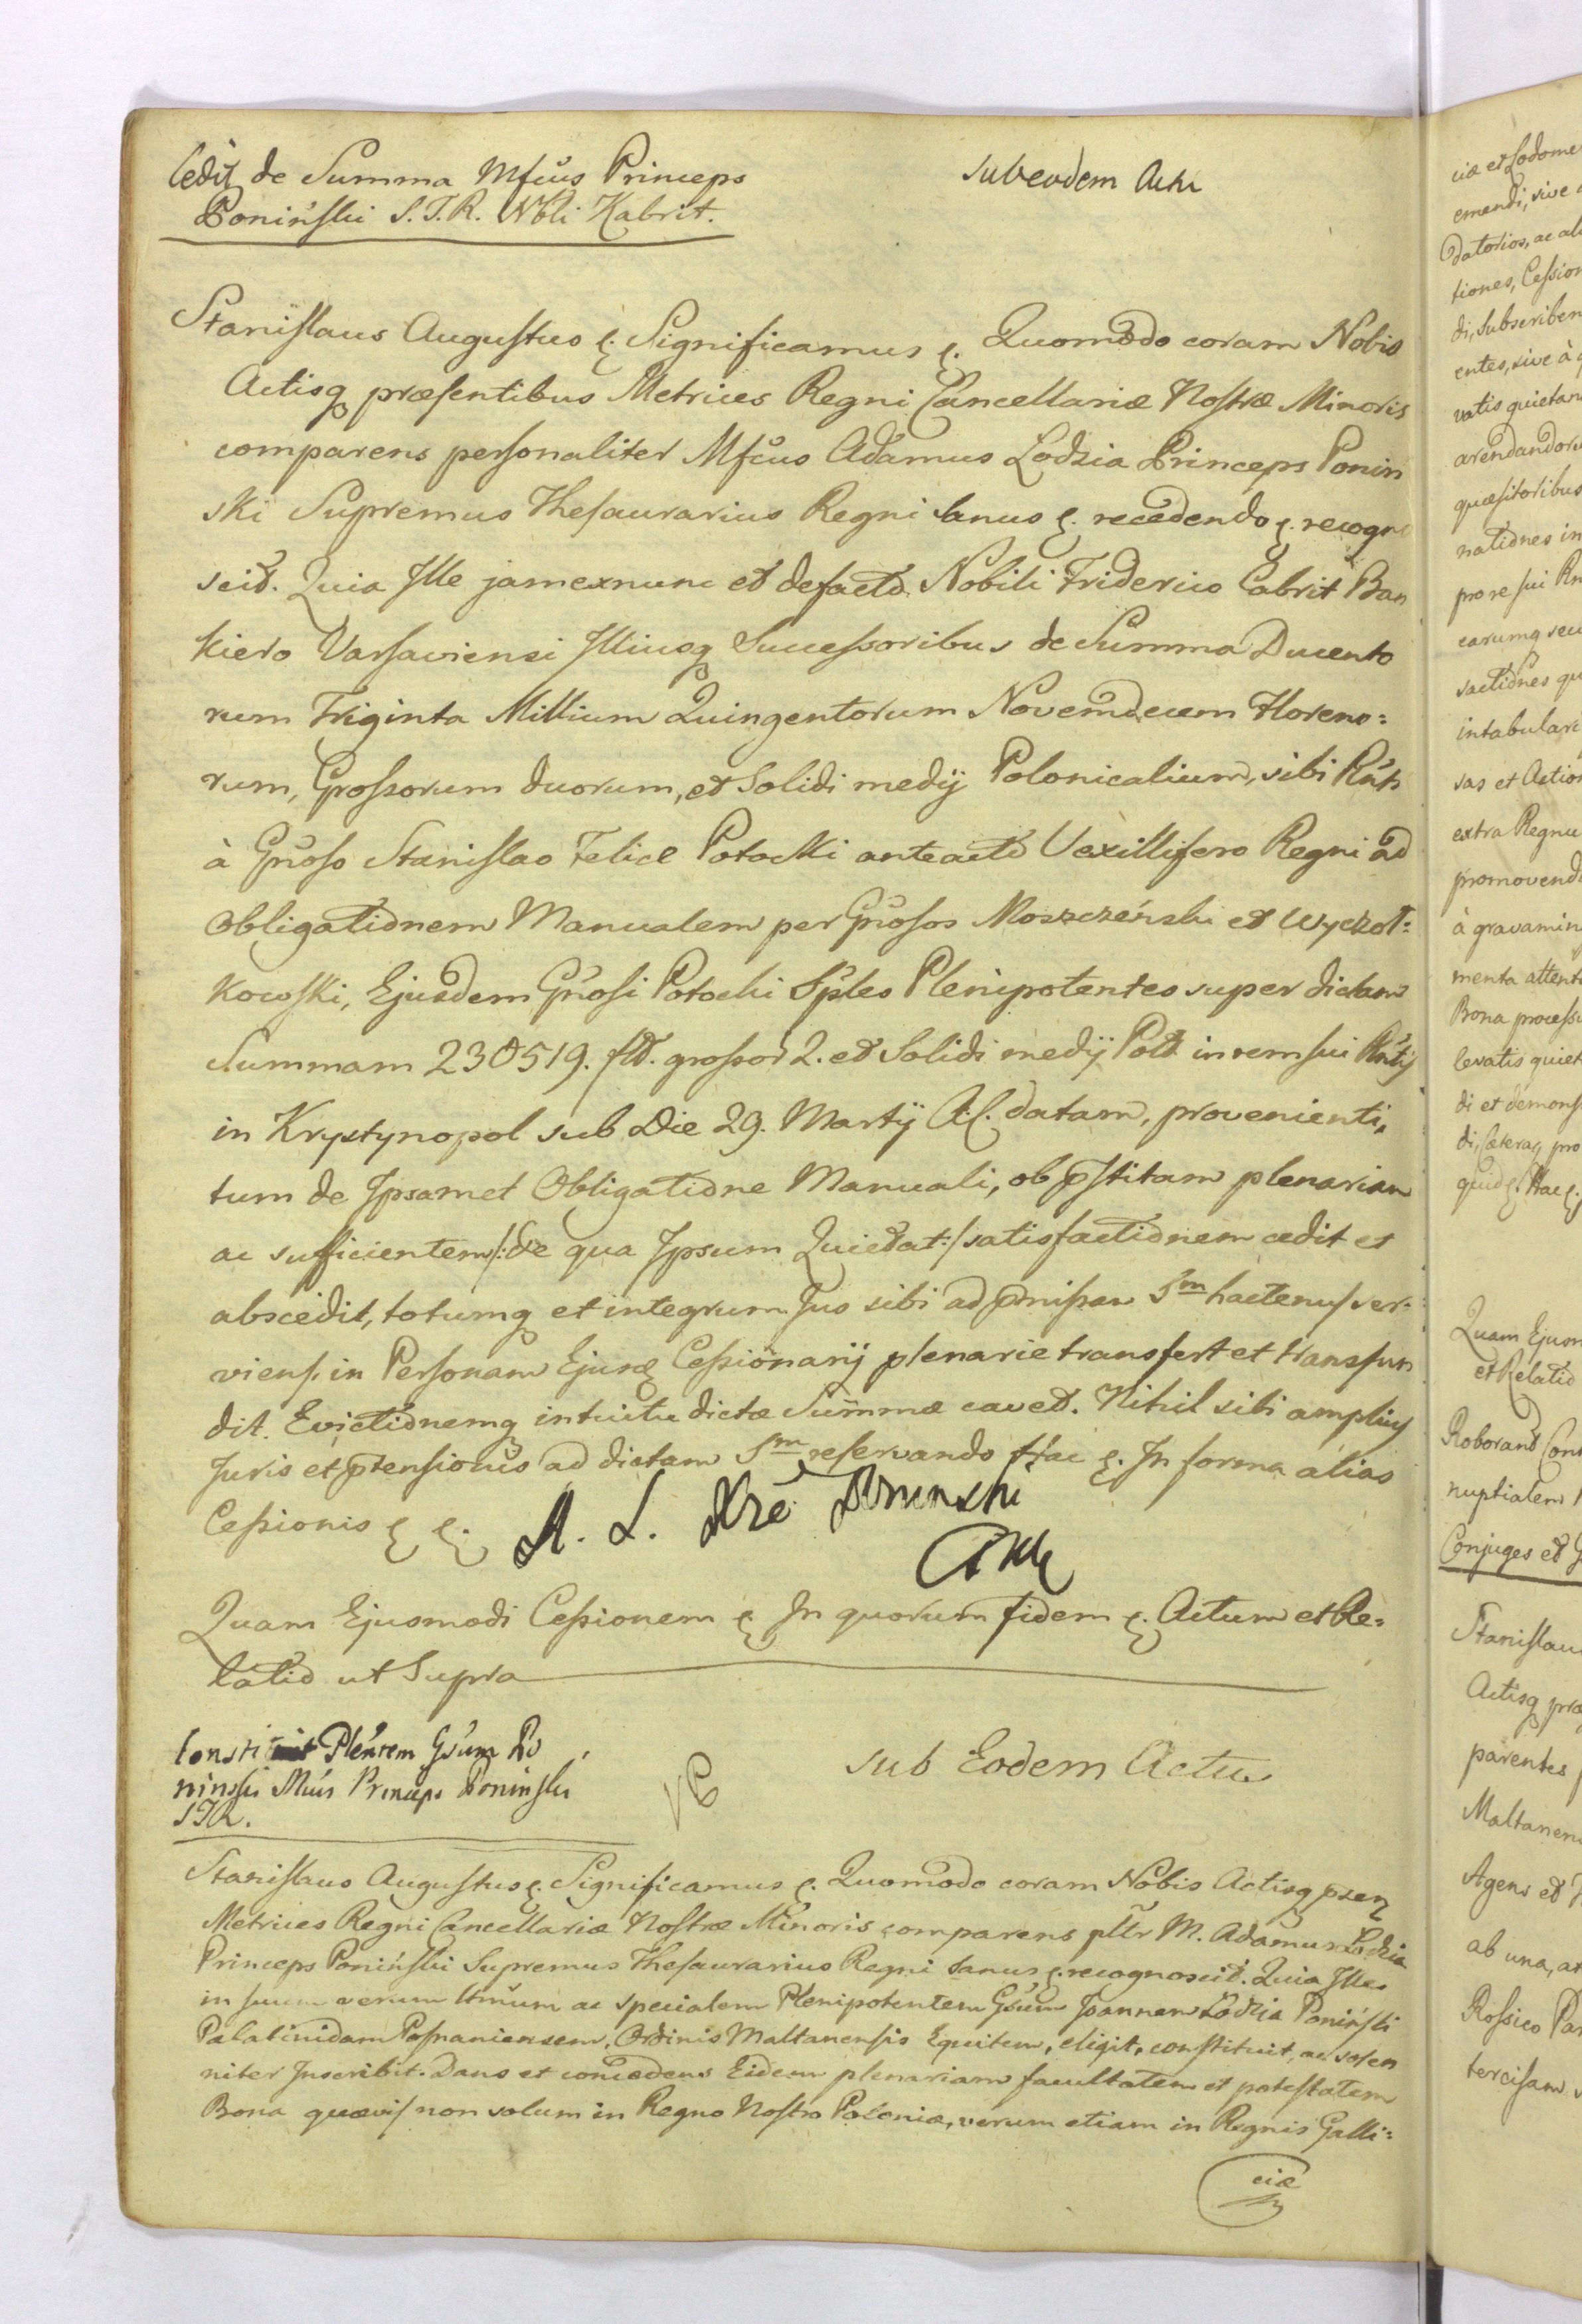 Cedit de Summa Mfcus Princeps
Poniński S.T.R. Nbli Kabrit.
sub eodem Actu
Stanislaus Augustus &. Significamus &. Quomodo coram Nobis
Actisq præsentibus Metrices Regni Cancellariæ Nostræ Minoris
comparens personaliter Mfcus Adamus Lodzia Princeps Ponin
ski Supremus Thesaurarius Regni Sanus &. recedendo &. recogno
scit. Quia Ille jam exnunc et defacto Nobili Friderico Cabrit Ban
kiero Varsaviensi Illiusq Successoribus de Summa Ducento
rum Triginta Millium Quingentorum Novemdecem Floreno:
rum, Grossorum duorum, et Solidi medij Polonicalium, sibi Rnti
à Gnoso Stanislao Felice Potocki anteacto Vexillifero Regni ad
Obligationem Manualem per Gnosos Moszczeński et Wyczoł:
kowski, Ejusdem Gnosi Potocki Sples Plenipotentes super dictam
Summam 230519. fld. grossor 2. et Solidi medij Pold in rem sui Rntij
in Krystynopol sub Die 29. Martij A.C. datam, provenienti,
tum de Ipsamet Obligatione Manuali, ob pstitam plenariam
ac sufficientem /:de qua Ipsum Quietat:/ satisfactionem cedit et
abscedit, totumq et integrum Jus sibi ad pmissam Sm hactenus ser:
viens. in Personam Ejusd Cessionarij plenarie transfert et transfun
dit. Evictionemq intuitu dictæ Summæ cavet. Nihil sibi amplius
Juris et ptensionis ad dictam Sm reservando Hac &. In forma alias
Cessionis & &. A. L. Xże Poninski
Quam Ejusmodi Cessionem & In quorum fidem &. Actum et Re:
latio ut Supra
Constituit Plentem Gsum Po
ninski Mcus Princeps Poninski
STR.
sub Eodem Actu
Stanislaus Augustus &. Significamus &. Quomodo coram Nobis Actisq psen
Metrices Regni Cancellariæ Nostræ Minoris comparens pltr M. Adamus Lodzia
Princeps Poniński Supremus Thesaurarius Regni Sanus &. recognoscit. Quia Ille
in suum verum ltmum ac specialem Plenipotentem Gsum Joannem Lodzia Poniński
Palatinidam Posnaniensem, Ordinis Maltanensis Equitem, eligit, constituit, ac solen
niter Inscribit. Dans et concedens Eidem plenariam facultatem et potestatem
Bona quævis non solum in Regno Nostro Poloniæ, verum etiam in Regnis Galli:
ciæ
ciæ et Lodome
emendi, sive
datorios, ac al
tiones, Cession
di, Subscriben
entes, sive à
vatis quietan
arendandoru
quæsitoribus
nationes in
pro re sui Rn
earumq rec
sactiones qu
intabulari
sas et Action
extra Regnu
promovend
à gravamin
menta attent
Bona processu
levatis quiet
di et demons
di, Cæteraq pro
quid &. Hac &.
Quam Ejusm
et Relatio
Roborant Con
nuptialem
Conjuges et G
Stanislau
Actisq præ
parentes
Maltanen
Agens et
ab una, at
Rossico Pa
tercisam